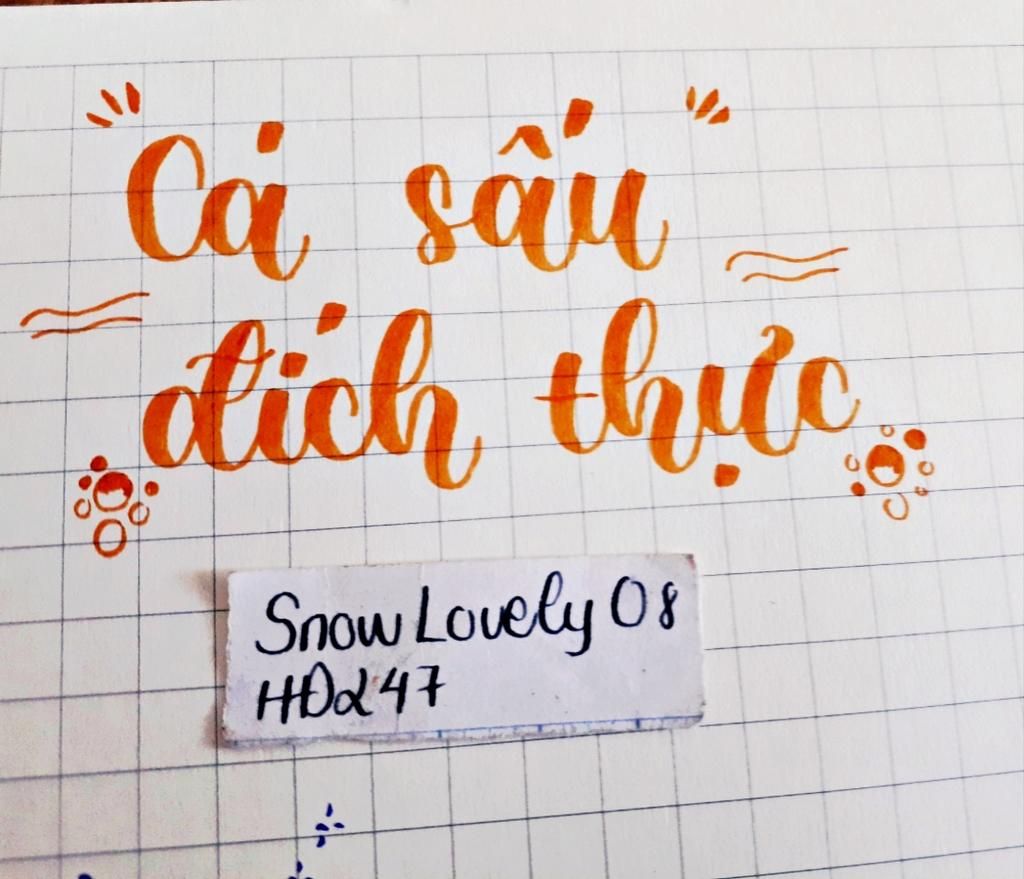 Cá sấu
đích thực
Snow Lovely 08
HD247